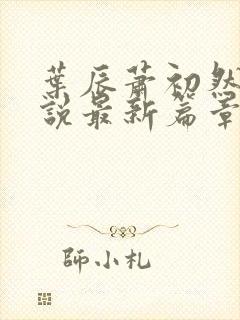 葉辰蕭初然
說最新篇章
師小札